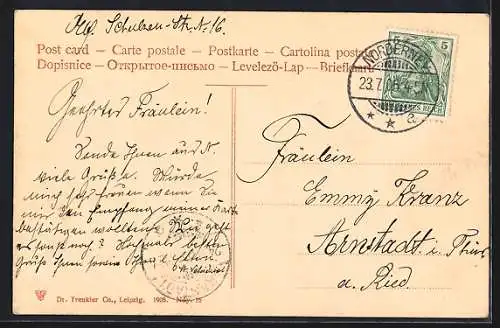 Schulzen-Str. N. 16.
Post card – Carte postale – Postkarte – Cartolina postale
Dopisnice – Открытое-письмо – Levelező-Lap – Briefkaart
5 5
NORDERNEY
23.7.08.4-5
* * a
Geehrtes Fräulein!
Sende Ihnen aus N.
viele Grüße. Würde
mich sehr freuen wenn Sie
mir den Empfang meiner Karte
bestätigen wollten. Wie geht
es sonst noch? Nochmals besten
Gruß Ihnen sowie Ihren Eltern
Fräulein
Emmy Kranz
Arnstadt i. Thür
a. Ried.
Dr. Trenkler Co., Leipzig. 1905. Ndy. 15